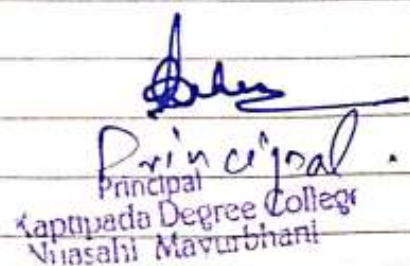 Principal.
Principal
Kaptipada Degree College
Nuasahi Mayurbhanj